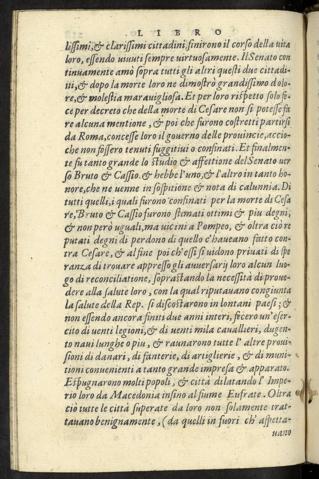 LIBRO
lissimi, & clarissimi cittadini, finirono il corso della uita
loro, essendo uiuuti sempre uirtuosamente. Il Senato con
tinuamente amò sopra tutti gli altri questi due cittadi-
ni, & dopo la morte loro ne dimostrò grandissimo dolo-
re, & molestia marauigliosa. Et per loro rispetto solo fe-
ce per decreto che della morte di Cesare non si potesse fa
re alcuna mentione, & poi che furono costretti partirsi
da Roma, concesse loro il gouerno delle prouincie, accio-
che non fossero tenuti fuggitiui o confinati. Et finalmen-
te fu tanto grande lo studio & affettione del Senato uer
so Bruto & Cassio & hebbe l'uno, & l'altro in tanto ho-
nore, che ne uenne in sospitione & nota di calunnia. Di
tutti quelli, i quali furono confinati per la morte di Cesa
re, Bruto & Cassio furono stimati ottimi & piu degni,
& non però uguali, ma uicini a Pompeo, & oltra ciò re
putati degni di perdono di quello c'haueano fatto con-
tra Cesare, & al fine poi ch'essi si uidono priuati di spe
ranza di trouare appresso gli auuersarij loro alcun luo-
go di reconciliatione, soprastando la necessità di proue-
dere alla salute loro, con la qual riputauano congiunta
la salute della Rep. si discostarono in lontani paesi; &
non essendo ancora finiti due anni interi, fecero un'eser-
cito di uenti legioni, & di uenti mila cauallieri, dugen-
to naui lunghe o piu, & raunarono tutte l'altre proui-
sioni di danari, di fanterie, di artiglierie, & di muni-
tioni conuenienti a tanto grande impresa & apparato.
Espugnarono molti popoli, & città dilatando l'Impe-
rio loro da Macedonia insino al fiume Eufrate. Oltra
ciò tutte le città superate da loro non solamente trat-
tauano benignamente, (da quelli in fuori ch'aspetta-
uano